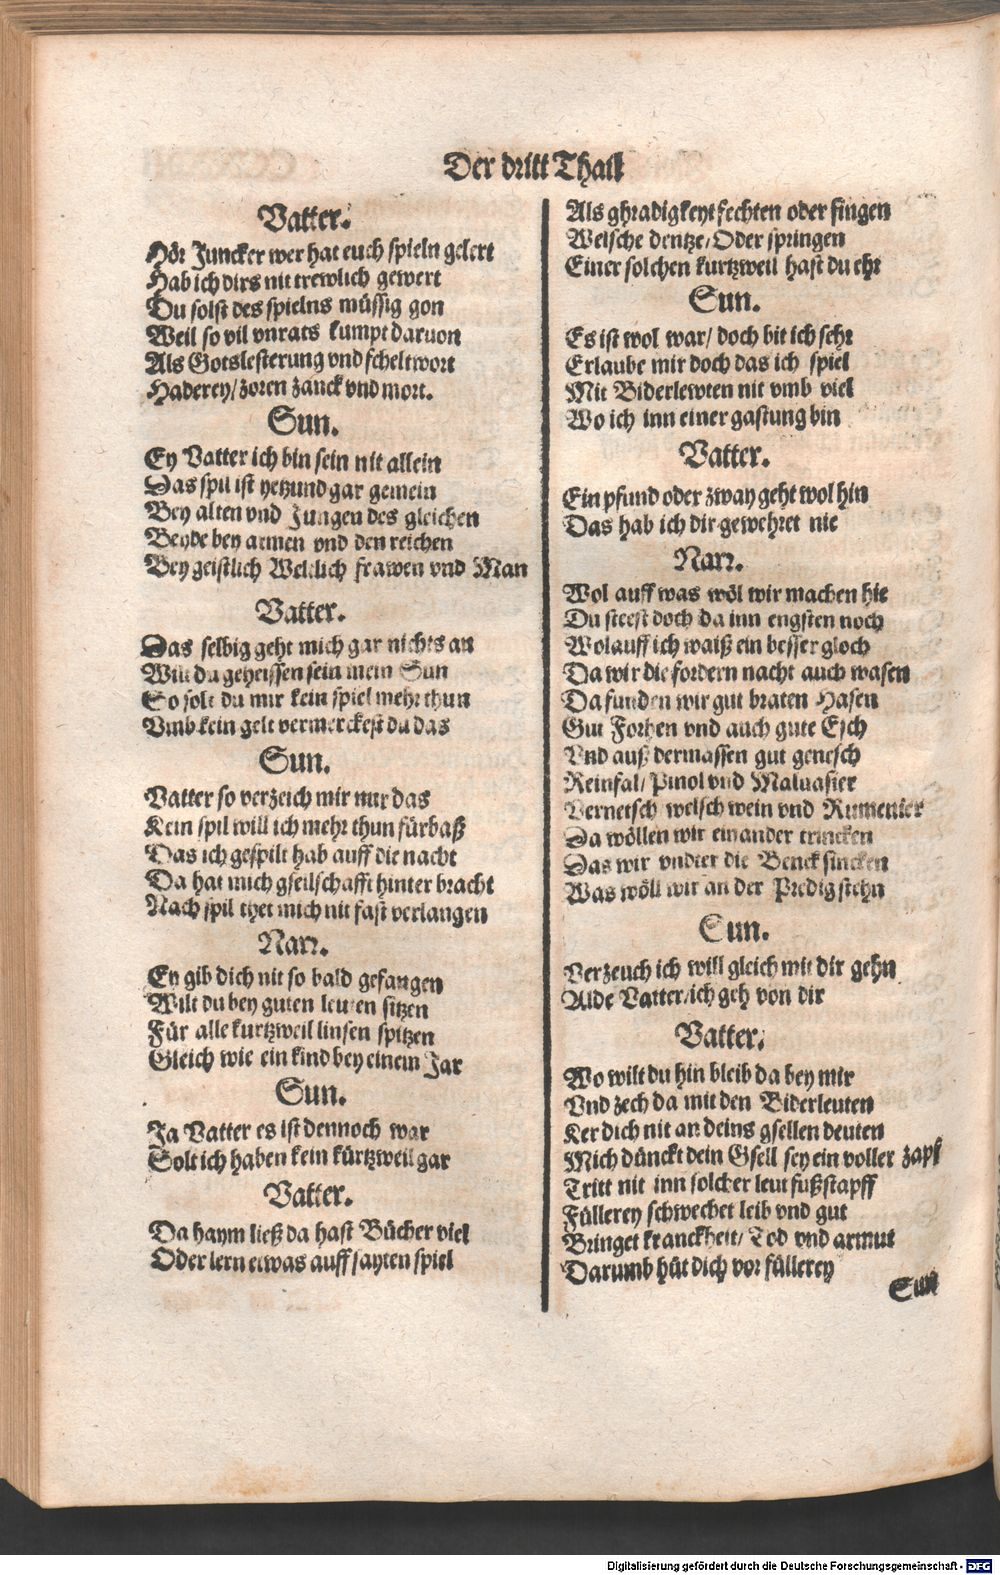 Der dritt Thail
Vatter.
Hör Juncker wer hat euch spieln gelert
Hab ich dirs nit trewlich gewert
Du solst des spielns müssig gon
Weil so vil vnrats kumpt daruon
Als Gotslesterung vnd scheltwort
Haderey/ zoren zanck vnd mort.
Sun.
Ey Vatter ich bin sein nit allein
Das spil ist yetzund gar gemein
Bey alten vnd Jungen des gleichen
Beyde bey armen vnd den reichen
Bey geistlich Weltlich frawen vnd Man
Vatter.
Das selbig geht mich gar nichts an
Wilt du geheissen sein mein Sun
So solt du mir kein spiel mehr thun
Vmb kein gelt vermerckest du das
Sun.
Vatter so verzeich mir nur das
Kein spil will ich mehr thun fürbaß
Das ich gespilt hab auff die nacht
Da hat mich gsellschafft hinter bracht
Nach spil thet mich nit fast verlangen
Narr.
Ey gib dich nit so bald gefangen
Wilt du bey guten leuten sitzen
Für alle kurtzweil linsen spitzen
Gleich wie ein kind bey einem Jar
Sun.
Ja Vatter es ist dennoch war
Solt ich haben kein kürtzweil gar
Vatter.
Da haym ließ da hast Bücher viel
Oder lern etwas auff sayten spiel
Als ghradigkeyt fechten oder singen
Welsche dentze/ Oder springen
Einer solchen kurtzweil hast du ehr
Sun.
Es ist wol war/ doch bit ich sehr
Erlaube mir doch das ich spiel
Mit Biderlewten nit vmb viel
Wo ich inn einer gastung bin
Vatter.
Ein pfund oder zway geht wol hin
Das hab ich dir gewehret nie
Narr.
Wol auff was wöl wir machen hie
Du steest doch da inn engsten noch
Wolauff ich waiß ein besser gloch
Da wir die fordern nacht auch wasen
Da funden wir gut braten Hasen
Gut Forhen vnd auch gute Esch
Vnd auß dermassen gut genesch
Reinfal/ Pinol vnd Maluasier
Vernetsch welsch wein vnd Rumenier
Da wöllen wir einander trincken
Das wir vndter die Benck sincken
Was wöll wir an der Predig stehn
Sun.
Verzeuch ich will gleich mit dir gehn
Alde Vatter/ ich geh von dir
Vatter.
Wo wilt du hin bleib da bey mir
Vnd zech da mit den Biderleuten
Ker dich nit an deins gsellen deuten
Mich dünckt dein Gsell sey ein voller zapf
Tritt nit inn solcher leut fußstapff
Füllerey schwechet leib vnd gut
Bringet kranckheit/ Tod vnd armut
Darumb hüt dich vor füllerey
Sun
Digitalisierung gefördert durch die Deutsche Forschungsgemeinschaft - DFG